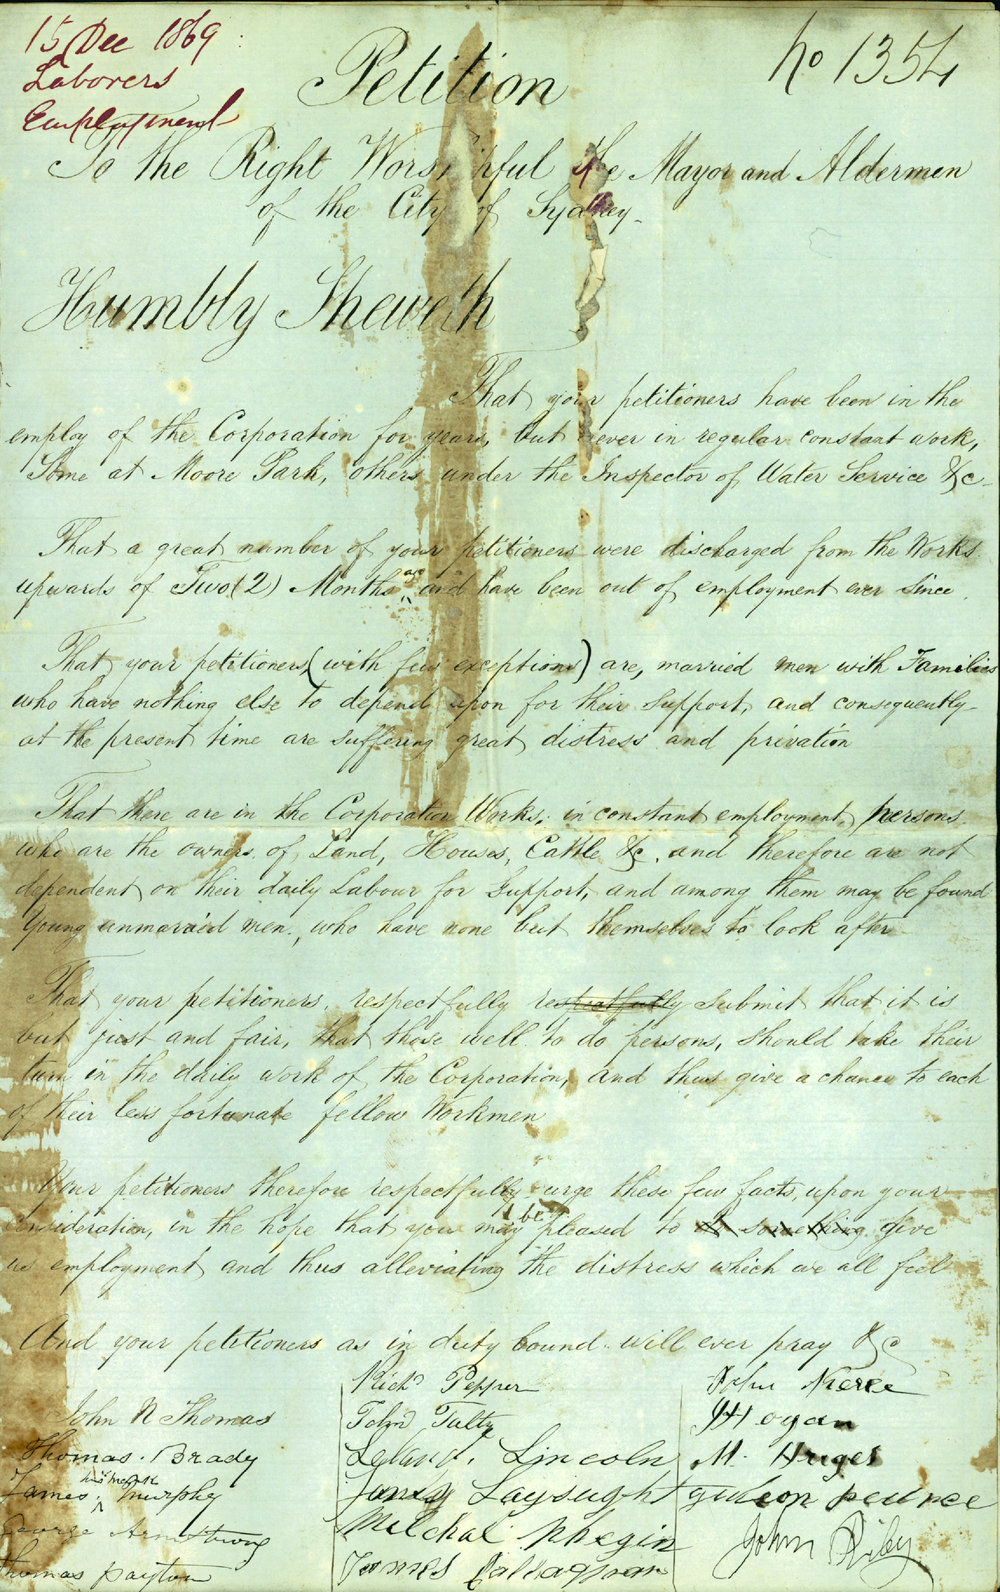 15 Dec 1869
Laborers
Employment
No 1354
Petition
To the Right Worshipful the Mayor and Aldermen
of the City of Sydney
Humbly Sheweth
That your petitioners have been in the
employ of the Corporation for years, but never in regular constant work,
Some at Moore Park, others under the Inspector of Water Service &c
That a great number of your petitioners were discharged from the Works
upwards of Two (2) Months ago and have been out of employment ever since.
That your petitioners (with few exceptions) are, married men with Families
who have nothing else to depend upon for their support, and consequently
at the present time are suffering great distress and privation
That there are in the Corporation Works, in constant employment, persons
who are the owners of Land, Houses, Cattle &c, and therefore are not
dependent on their daily Labour for support, and among them may be found
Young unmarried men, who have none but themselves to look after
That your petitioners, respectfully respectfully submit that it is
but just and fair, that those well to do persons, should take their
turn in the daily work of the Corporation, and thus give a chance to each
of their less fortunate fellow Workmen
Your petitioners therefore respectfully urge these few facts, upon your
consideration, in the hope that you may be pleased to do something Give
us employment and thus alleviating the distress which we all feel
And your petitioners as in duty bound will ever pray &c
John N Thomas
Thomas Brady
James his mark Murphy
George Armstrong
Thomas payton
Richd Pepper
John Tulty
Lincoln
James
Michal
James
John Pierce
Hogan
M.
John Riley